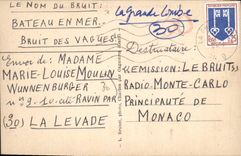 LE NOM DU BRUIT:
BATEAU EN MER.
BRUIT DES VAGUES
La Grande Combe
(30)
Destinataire:
Envoi de: MADAME
MARIE-LOUISE MOULIN
WUNNENBURGER
nº 9
RAVIN PAR
(30) LA LEVADE
EMISSION: LE BRUIT
RADIO-MONTE-CARLO
PRINCIPAUTÉ DE
MONACO